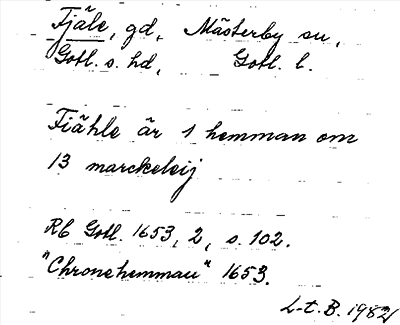 Fjäle, gd, Mästerby sn,
Gotl. s. hd, Gotl. l.
Fiähle är 1 hemman om
13 marckeleij
Rb Gotl. 1653, 2, s. 102.
"Chronehemman" 1653.
L-t. B. 1982